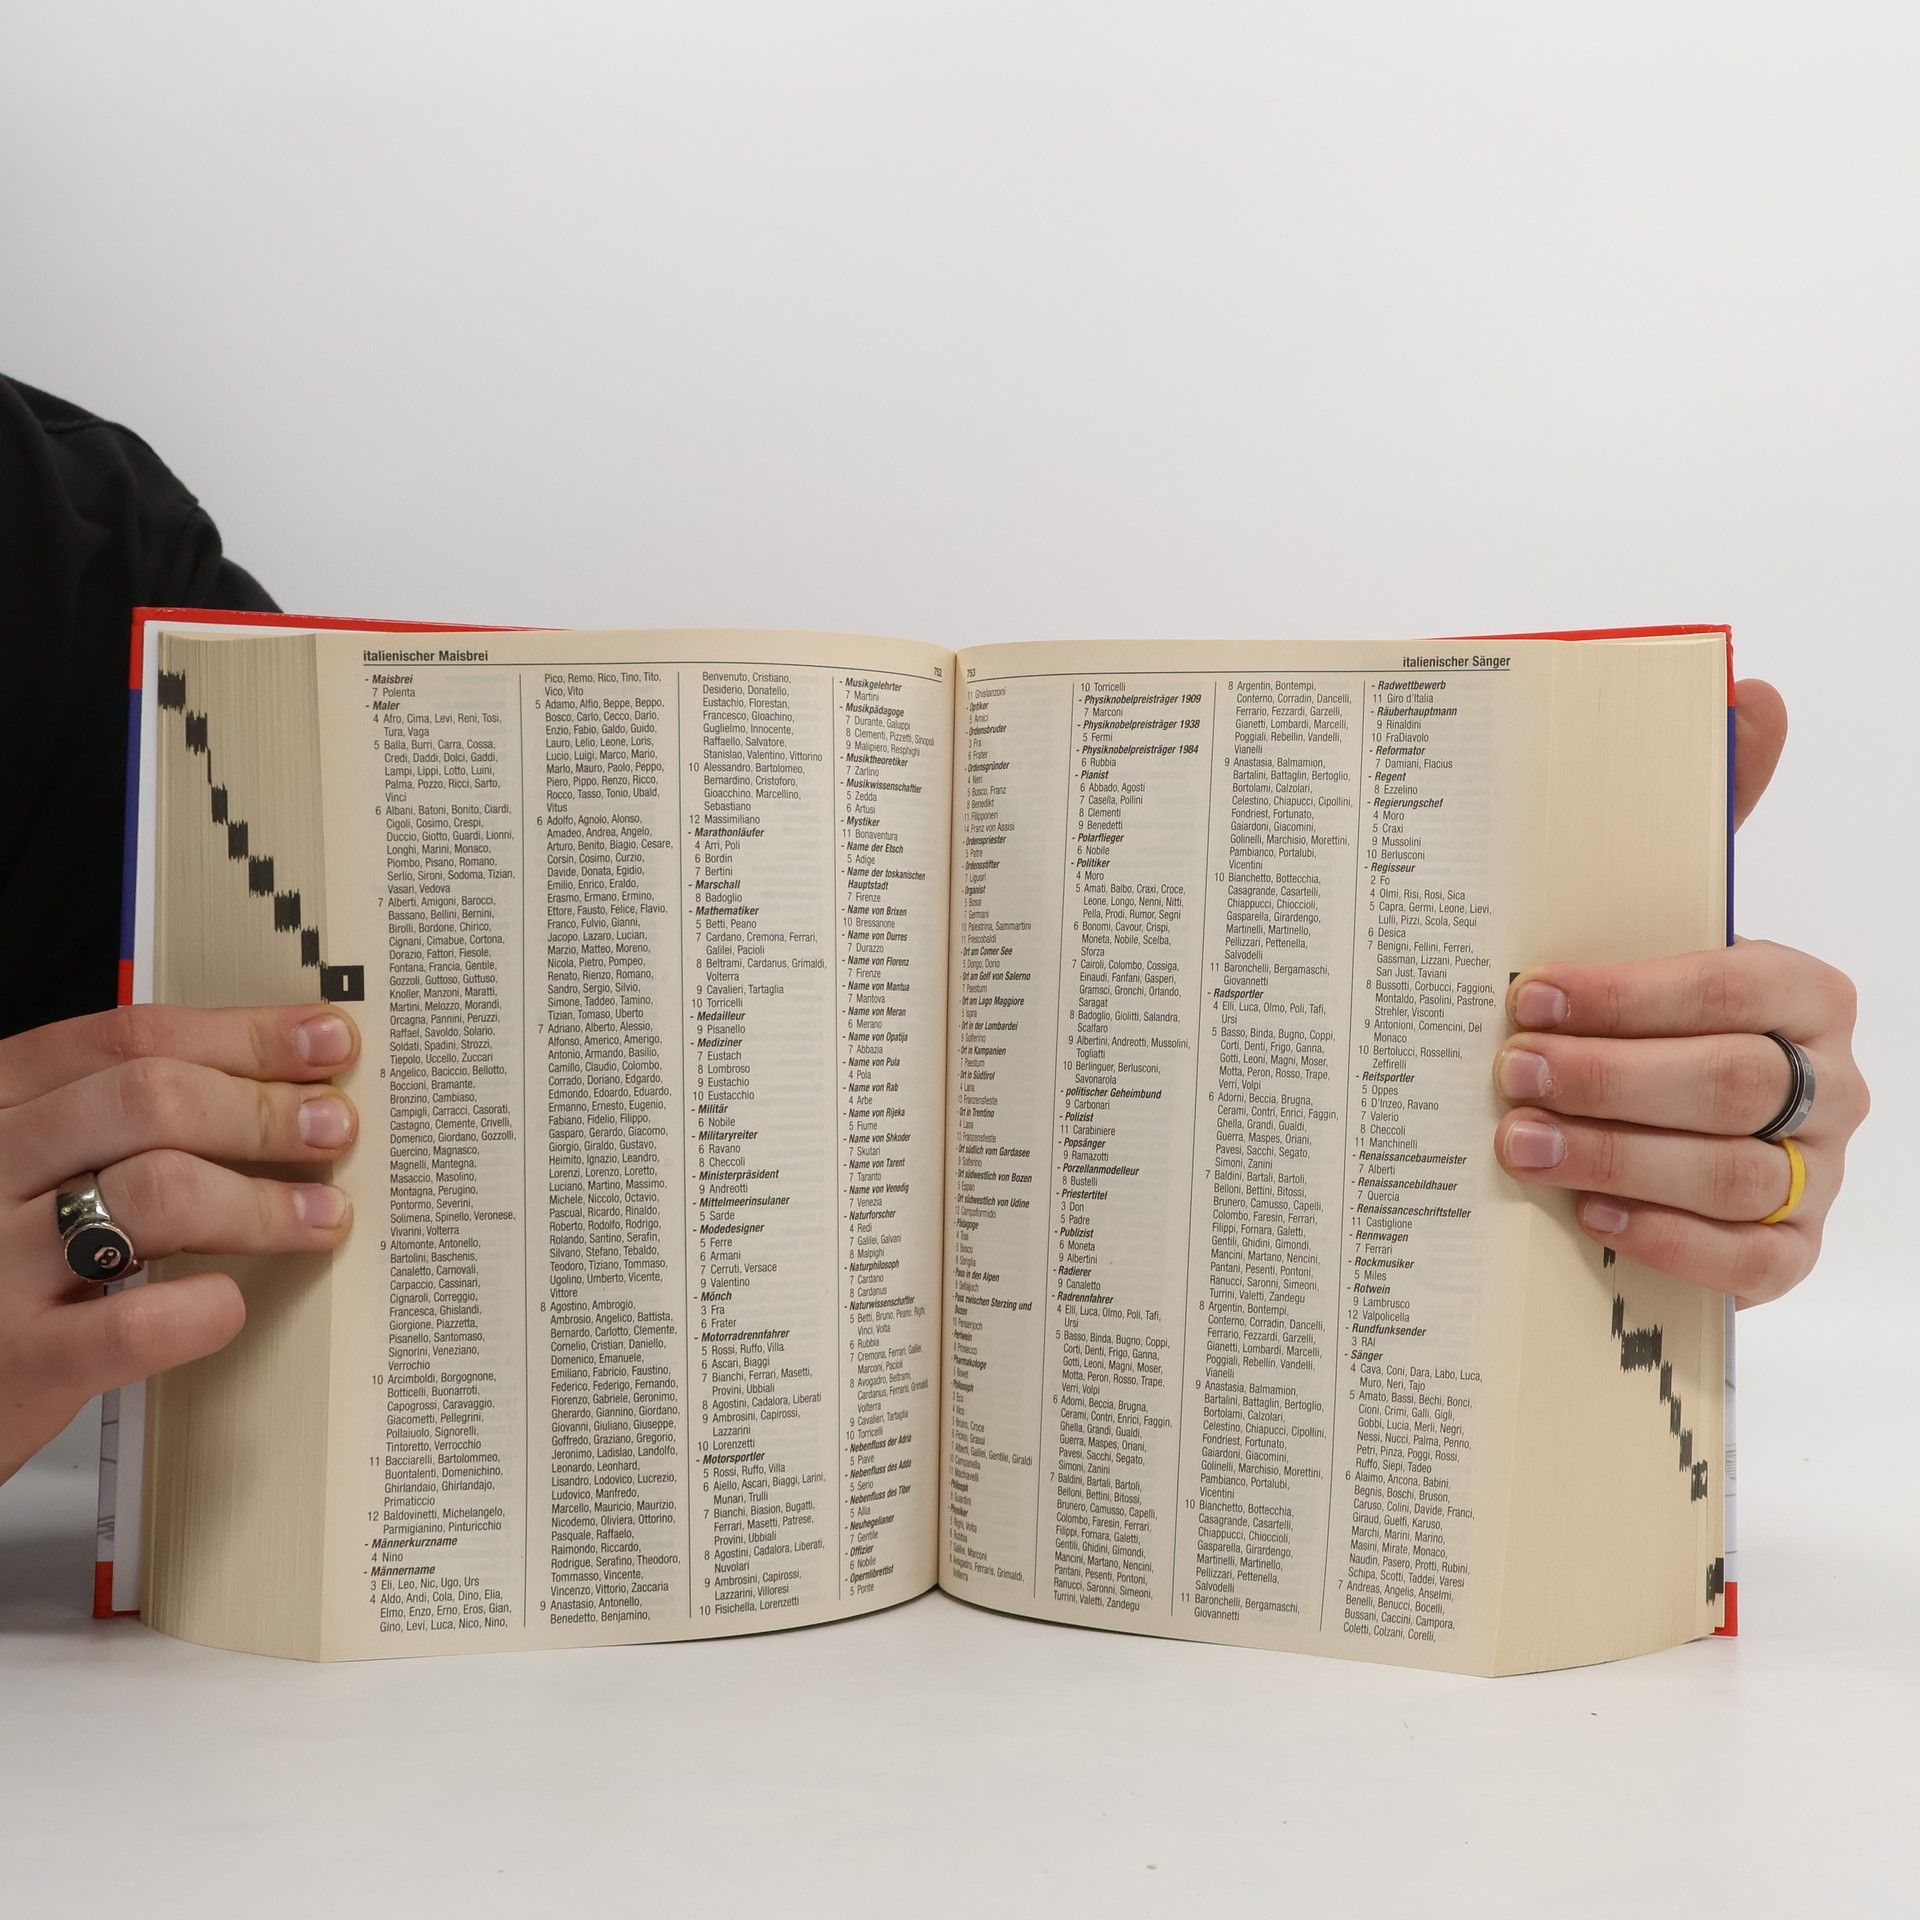 italienischer Maisbrei
752
- Maisbrei
7 Polenta
- Maler
4 Afro, Cima, Levi, Reni, Tosi,
Tura, Vaga
5 Balla, Burri, Carra, Cossa,
Credi, Daddi, Dolci, Gaddi,
Lampi, Lippi, Lotto, Luini,
Palma, Pozzo, Ricci, Sarto,
Vinci
6 Albani, Batoni, Bonito, Ciardi,
Cigoli, Cosimo, Crespi,
Duccio, Giotto, Guardi, Lionni,
Longhi, Marini, Monaco,
Piombo, Pisano, Romano,
Serlio, Sironi, Sodoma, Tizian,
Vasari, Vedova
7 Alberti, Amigoni, Barocci,
Bassano, Bellini, Bernini,
Birolli, Bordone, Chirico,
Cignani, Cimabue, Cortona,
Dorazio, Fattori, Fiesole,
Fontana, Francia, Gentile,
Gozzoli, Guttoso, Guttuso,
Knoller, Manzoni, Maratti,
Martini, Melozzo, Morandi,
Orcagna, Pannini, Peruzzi,
Raffael, Savoldo, Solario,
Soldati, Spadini, Strozzi,
Tiepolo, Uccello, Zuccari
8 Angelico, Baciccio, Bellotto,
Boccioni, Bramante,
Bronzino, Cambiaso,
Campigli, Carracci, Casorati,
Castagno, Clemente, Crivelli,
Domenico, Giordano, Gozzolli,
Guercino, Magnasco,
Magnelli, Mantegna,
Masaccio, Masolino,
Montagna, Perugino,
Pontormo, Severini,
Solimena, Spinello, Veronese,
Vivarini, Volterra
9 Altomonte, Antonello,
Bartolini, Baschenis,
Canaletto, Carnovali,
Carpaccio, Cassinari,
Cignaroli, Correggio,
Francesca, Ghislandi,
Giorgione, Piazzetta,
Pisanello, Santomaso,
Signorini, Veneziano,
Verrochio
10 Arcimboldi, Borgognone,
Botticelli, Buonarroti,
Capogrossi, Caravaggio,
Giacometti, Pellegrini,
Pollaiuolo, Signorelli,
Tintoretto, Verrocchio
11 Bacciarelli, Bartolommeo,
Buontalenti, Domenichino,
Ghirlandaio, Ghirlandajo,
Primaticcio
12 Baldovinetti, Michelangelo,
Parmigianino, Pinturicchio
- Männerkurzname
4 Nino
- Männername
3 Eli, Leo, Nic, Ugo, Urs
4 Aldo, Andi, Cola, Dino, Elia,
Elmo, Enzo, Erno, Eros, Gian,
Gino, Levi, Luca, Nico, Nino,
Pico, Remo, Rico, Tino, Tito,
Vico, Vito
5 Adamo, Alfio, Beppe, Beppo,
Bosco, Carlo, Cecco, Dario,
Enzio, Fabio, Galdo, Guido,
Lauro, Lelio, Leone, Loris,
Lucio, Luigi, Marco, Mario,
Marlo, Mauro, Paolo, Peppo,
Piero, Pippo, Renzo, Ricco,
Rocco, Tasso, Tonio, Ubald,
Vitus
6 Adolfo, Agnolo, Alonso,
Amadeo, Andrea, Angelo,
Arturo, Benito, Biagio, Cesare,
Corsin, Cosimo, Curzio,
Davide, Donata, Egidio,
Emilio, Enrico, Eraldo,
Erasmo, Ermano, Ermino,
Ettore, Fausto, Felice, Flavio,
Franco, Fulvio, Gianni,
Jacopo, Lazaro, Lucian,
Marzio, Matteo, Moreno,
Nicola, Pietro, Pompeo,
Renato, Rienzo, Romano,
Sandro, Sergio, Silvio,
Simone, Taddeo, Tamino,
Tizian, Tomaso, Uberto
7 Adriano, Alberto, Alessio,
Alfonso, Americo, Amerigo,
Antonio, Armando, Basilio,
Camillo, Claudio, Colombo,
Corrado, Doriano, Edgardo,
Edmondo, Edoardo, Eduardo,
Ermanno, Ernesto, Eugenio,
Fabiano, Fidelio, Filippo,
Gasparo, Gerardo, Giacomo,
Giorgio, Giraldo, Gustavo,
Heimito, Ignazio, Leandro,
Lorenzi, Lorenzo, Loretto,
Luciano, Martino, Massimo,
Michele, Niccolo, Octavio,
Pascual, Ricardo, Rinaldo,
Roberto, Rodolfo, Rodrigo,
Rolando, Santino, Serafin,
Silvano, Stefano, Tebaldo,
Teodoro, Tiziano, Tommaso,
Ugolino, Umberto, Vicente,
Vittore
8 Agostino, Ambrogio,
Ambrosio, Angelico, Battista,
Bernardo, Carlotto, Clemente,
Cornelio, Cristian, Daniello,
Domenico, Emanuele,
Emiliano, Fabricio, Faustino,
Federico, Federigo, Fernando,
Fiorenzo, Gabriele, Geronimo,
Gherardo, Giannino, Giordano,
Giovanni, Giuliano, Giuseppe,
Goffredo, Graziano, Gregorio,
Jeronimo, Ladislao, Landolfo,
Leonardo, Leonhard,
Lisandro, Lodovico, Lucrezio,
Ludovico, Manfredo,
Marcello, Mauricio, Maurizio,
Nicodemo, Oliviera, Ottorino,
Pasquale, Raffaelo,
Raimondo, Riccardo,
Rodrigue, Serafino, Theodoro,
Tommasso, Vincente,
Vincenzo, Vittorio, Zaccaria
9 Anastasio, Antonello,
Benedetto, Benjamino,
Benvenuto, Cristiano,
Desiderio, Donatello,
Eustachio, Florestan,
Francesco, Gioachino,
Guglielmo, Innocente,
Raffaello, Salvatore,
Stanislao, Valentino, Vittorino
10 Alessandro, Bartolomeo,
Bernardino, Cristoforo,
Gioacchino, Marcellino,
Sebastiano
12 Massimiliano
- Marathonläufer
4 Arri, Poli
6 Bordin
7 Bertini
- Marschall
8 Badoglio
- Mathematiker
5 Betti, Peano
7 Cardano, Cremona, Ferrari,
Galilei, Pacioli
8 Beltrami, Cardanus, Grimaldi,
Volterra
9 Cavalieri, Tartaglia
10 Torricelli
- Medailleur
9 Pisanello
- Mediziner
7 Eustach
8 Lombroso
9 Eustachio
10 Eustacchio
- Militär
6 Nobile
- Militaryreiter
6 Ravano
8 Checcoli
- Ministerpräsident
9 Andreotti
- Mittelmeerinsulaner
5 Sarde
- Modedesigner
5 Ferre
6 Armani
7 Cerruti, Versace
9 Valentino
- Mönch
3 Fra
6 Frater
- Motorradrennfahrer
5 Rossi, Ruffo, Villa
6 Ascari, Biaggi
7 Bianchi, Ferrari, Masetti,
Provini, Ubbiali
8 Agostini, Cadalora, Liberati
9 Ambrosini, Capirossi,
Lazzarini
10 Lorenzetti
- Motorsportler
5 Rossi, Ruffo, Villa
6 Aiello, Ascari, Biaggi, Larini,
Munari, Trulli
7 Bianchi, Biasion, Bugatti,
Ferrari, Masetti, Patrese,
Provini, Ubbiali
8 Agostini, Cadalora, Liberati,
Nuvolari
9 Ambrosini, Capirossi,
Lazzarini, Villoresi
10 Fisichella, Lorenzetti
- Musikgelehrter
7 Martini
- Musikpädagoge
7 Durante, Galuppi
8 Clementi, Pizzetti, Sinopoli
9 Malipiero, Resphighi
- Musiktheoretiker
7 Zarlino
- Musikwissenschaftler
5 Zedda
6 Artusi
- Mystiker
11 Bonaventura
- Name der Etsch
5 Adige
- Name der toskanischen
Hauptstadt
7 Firenze
- Name von Brixen
10 Bressanone
- Name von Durres
7 Durazzo
- Name von Florenz
7 Firenze
- Name von Mantua
7 Mantova
- Name von Meran
6 Merano
- Name von Opatija
7 Abbazia
- Name von Pula
4 Pola
- Name von Rab
4 Arbe
- Name von Rijeka
5 Fiume
- Name von Shkoder
7 Skutari
- Name von Tarent
7 Taranto
- Name von Venedig
7 Venezia
- Naturforscher
4 Redi
7 Galilei, Galvani
8 Malpighi
- Naturphilosoph
7 Cardano
8 Cardanus
- Naturwissenschaftler
5 Betti, Bruno, Peano, Righi,
Vinci, Volta
6 Rubbia
7 Cremona, Ferrari, Galilei,
Marconi, Pacioli
8 Avogadro, Beltrami,
Cardanus, Ferraris, Grimaldi,
Volterra
9 Cavalieri, Tartaglia
10 Torricelli
- Nebenfluss der Adria
5 Piave
- Nebenfluss des Adda
5 Serio
- Nebenfluss des Tiber
5 Allia
- Neuhegelianer
7 Gentile
- Offizier
6 Nobile
- Opernlibrettist
5 Ponte
I
753
italienischer Sänger
11 Ghislanzoni
- Optiker
5 Amici
- Ordensbruder
3 Fra
6 Frater
- Ordensgründer
4 Neri
5 Bosco, Franz
8 Benedikt
11 Filipponeri
14 Franz von Assisi
- Ordenspriester
5 Patre
- Ordensstifter
7 Liguori
- Organist
5 Bossi
7 Germani
10 Palestrina, Sammartini
11 Frescobaldi
- Ort am Comer See
5 Dongo, Dorio
- Ort am Golf von Salerno
7 Paestum
- Ort am Lago Maggiore
5 Ispra
- Ort in der Lombardei
9 Solferino
- Ort in Kampanien
7 Paestum
- Ort in Südtirol
4 Lana
13 Franzensfeste
- Ort in Trentino
4 Lana
13 Franzensfeste
- Ort südlich vom Gardasee
9 Solferino
- Ort südwestlich von Bozen
5 Eppan
- Ort südwestlich von Udine
12 Campoformido
- Pädagoge
5 Bosco
- Pass in den Alpen
9 Sellajoch
- Pass zwischen Sterzing und
Bozen
10 Penserjoch
- Perlwein
8 Prosecco
- Pharmakologe
5 Bovet
- Philosoph
3 Eco
4 Vico
5 Bruno, Croce
6 Ficino, Grassi
7 Alberti, Galilei, Gentile, Giraldi
10 Campanella
11 Machiavelli
- Philosoph
8 Guardini
- Physiker
5 Righi, Volta
6 Rubbia
7 Galilei, Marconi
8 Avogadro, Ferraris, Grimaldi,
Volterra
10 Torricelli
- Physiknobelpreisträger 1909
7 Marconi
- Physiknobelpreisträger 1938
5 Fermi
- Physiknobelpreisträger 1984
6 Rubbia
- Pianist
6 Abbado, Agosti
7 Casella, Pollini
8 Clementi
9 Benedetti
- Polarflieger
6 Nobile
- Politiker
4 Moro
5 Amati, Balbo, Craxi, Croce,
Leone, Longo, Nenni, Nitti,
Pella, Prodi, Rumor, Segni
6 Bonomi, Cavour, Crispi,
Moneta, Nobile, Scelba,
Sforza
7 Cairoli, Colombo, Cossiga,
Einaudi, Fanfani, Gasperi,
Gramsci, Gronchi, Orlando,
Saragat
8 Badoglio, Giolitti, Salandra,
Scalfaro
9 Albertini, Andreotti, Mussolini,
Togliatti
10 Berlinguer, Berlusconi,
Savonarola
- politischer Geheimbund
9 Carbonari
- Polizist
11 Carabiniere
- Popsänger
9 Ramazotti
- Porzellanmodelleur
8 Bustelli
- Priestertitel
3 Don
5 Padre
- Publizist
6 Moneta
9 Albertini
- Radierer
9 Canaletto
- Radrennfahrer
4 Elli, Luca, Olmo, Poli, Tafi,
Ursi
5 Basso, Binda, Bugno, Coppi,
Corti, Denti, Frigo, Ganna,
Gotti, Leoni, Magni, Moser,
Motta, Peron, Rosso, Trape,
Verri, Volpi
6 Adorni, Beccia, Brugna,
Cerami, Contri, Enrici, Faggin,
Ghella, Grandi, Gualdi,
Guerra, Maspes, Oriani,
Pavesi, Sacchi, Segato,
Simoni, Zanini
7 Baldini, Bartali, Bartoli,
Belloni, Bettini, Bitossi,
Brunero, Camusso, Capelli,
Colombo, Faresin, Ferrari,
Filippi, Fornara, Galetti,
Gentili, Ghidini, Gimondi,
Mancini, Martano, Nencini,
Pantani, Pesenti, Pontoni,
Ranucci, Saronni, Simeoni,
Turrini, Valetti, Zandegu
8 Argentin, Bontempi,
Conterno, Corradin, Dancelli,
Ferrario, Fezzardi, Garzelli,
Gianetti, Lombardi, Marcelli,
Poggiali, Rebellin, Vandelli,
Vianelli
9 Anastasia, Balmamion,
Bartalini, Battaglin, Bertoglio,
Bortolami, Calzolari,
Celestino, Chiapucci, Cipollini,
Fondriest, Fortunato,
Gaiardoni, Giacomini,
Golinelli, Marchisio, Morettini,
Pambianco, Portalubi,
Vicentini
10 Bianchetto, Bottecchia,
Casagrande, Casartelli,
Chiappucci, Chioccioli,
Gasparella, Girardengo,
Martinelli, Martinello,
Pellizzari, Pettenella,
Salvodelli
11 Baronchelli, Bergamaschi,
Giovannetti
- Radsportler
4 Elli, Luca, Olmo, Poli, Tafi,
Ursi
5 Basso, Binda, Bugno, Coppi,
Corti, Denti, Frigo, Ganna,
Gotti, Leoni, Magni, Moser,
Motta, Peron, Rosso, Trape,
Verri, Volpi
6 Adorni, Beccia, Brugna,
Cerami, Contri, Enrici, Faggin,
Ghella, Grandi, Gualdi,
Guerra, Maspes, Oriani,
Pavesi, Sacchi, Segato,
Simoni, Zanini
7 Baldini, Bartali, Bartoli,
Belloni, Bettini, Bitossi,
Brunero, Camusso, Capelli,
Colombo, Faresin, Ferrari,
Filippi, Fornara, Galetti,
Gentili, Ghidini, Gimondi,
Mancini, Martano, Nencini,
Pantani, Pesenti, Pontoni,
Ranucci, Saronni, Simeoni,
Turrini, Valetti, Zandegu
8 Argentin, Bontempi,
Conterno, Corradin, Dancelli,
Ferrario, Fezzardi, Garzelli,
Gianetti, Lombardi, Marcelli,
Poggiali, Rebellin, Vandelli,
Vianelli
9 Anastasia, Balmamion,
Bartalini, Battaglin, Bertoglio,
Bortolami, Calzolari,
Celestino, Chiapucci, Cipollini,
Fondriest, Fortunato,
Gaiardoni, Giacomini,
Golinelli, Marchisio, Morettini,
Pambianco, Portalubi,
Vicentini
10 Bianchetto, Bottecchia,
Casagrande, Casartelli,
Chiappucci, Chioccioli,
Gasparella, Girardengo,
Martinelli, Martinello,
Pellizzari, Pettenella,
Salvodelli
11 Baronchelli, Bergamaschi,
Giovannetti
- Radwettbewerb
11 Giro d'Italia
- Räuberhauptmann
9 Rinaldini
10 FraDiavolo
- Reformator
7 Damiani, Flacius
- Regent
8 Ezzelino
- Regierungschef
4 Moro
5 Craxi
9 Mussolini
10 Berlusconi
- Regisseur
2 Fo
4 Olmi, Risi, Rosi, Sica
5 Capra, Germi, Leone, Lievi,
Lulli, Pizzi, Scola, Sequi
6 Desica
7 Benigni, Fellini, Ferreri,
Gassman, Lizzani, Puecher,
San Just, Taviani
8 Bussotti, Corbucci, Faggioni,
Montaldo, Pasolini, Pastrone,
Strehler, Visconti
9 Antonioni, Comencini, Del
Monaco
10 Bertolucci, Rossellini,
Zeffirelli
- Reitsportler
5 Oppes
6 D'Inzeo, Ravano
7 Valerio
8 Checcoli
11 Manchinelli
- Renaissancebaumeister
7 Alberti
- Renaissancebildhauer
7 Quercia
- Renaissanceschriftsteller
11 Castiglione
- Rennwagen
7 Ferrari
- Rockmusiker
5 Miles
- Rotwein
9 Lambrusco
12 Valpolicella
- Rundfunksender
3 RAI
- Sänger
4 Cava, Coni, Dara, Labo, Luca,
Muro, Neri, Tajo
5 Amato, Bassi, Bechi, Bonci,
Cioni, Crimi, Galli, Gigli,
Gobbi, Lucia, Merli, Negri,
Nessi, Nucci, Palma, Penno,
Petri, Pinza, Poggi, Rossi,
Ruffo, Siepi, Tadeo
6 Alaimo, Ancona, Babini,
Begnis, Boschi, Bruson,
Caruso, Colini, Davide, Franci,
Giraud, Guelfi, Karuso,
Marchi, Marini, Marino,
Masini, Mirate, Monaco,
Naudin, Pasero, Protti, Rubini,
Schipa, Scotti, Taddei, Varesi
7 Andreas, Angelis, Anselmi,
Benelli, Benucci, Bocelli,
Bussani, Caccini, Campora,
Coletti, Colzani, Corelli,